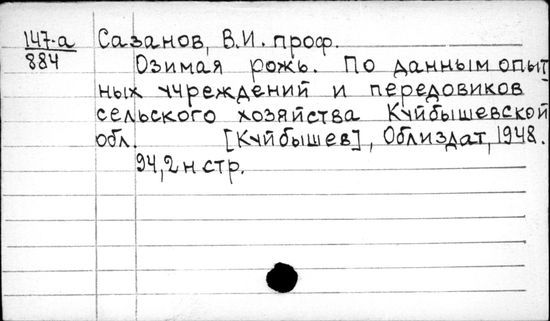 147-а Сазанов, В.И. проф.
884 Озимая рожь. По данным опыт
ных учреждений и передовиков
сельского хозяйства Куйбышевской
обл. [Куйбышев], Облиздат, 1948.
94,2н стр.